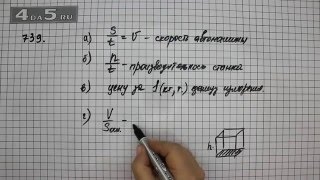 4DA5.RU
739.
а) S/t = V - скорость автомашины
б) n/t - производительность станка
в) цену за 1 (кг, г.) данных измерения.
г) V/Sосн. -
h